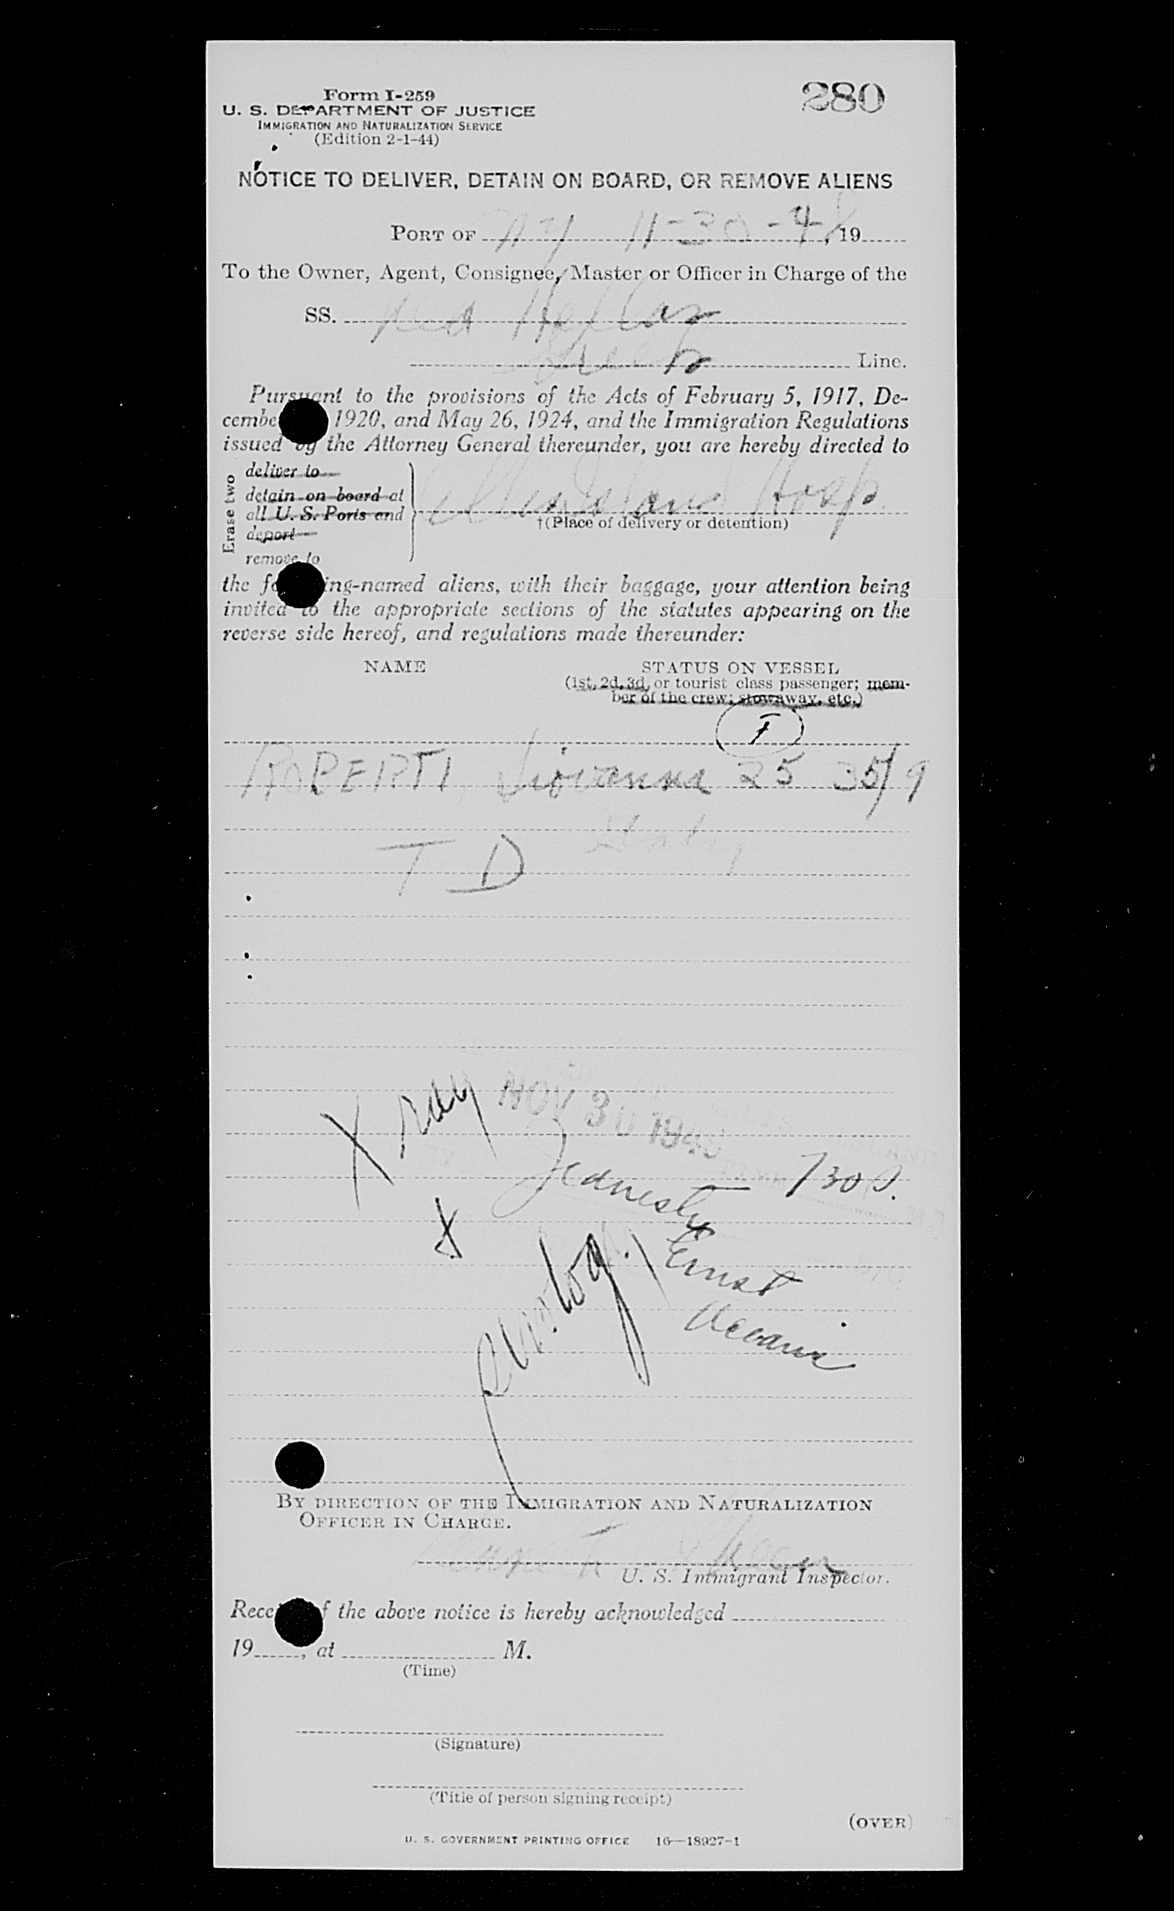 Form I-259
280
U. S. DEPARTMENT OF JUSTICE
IMMIGRATION AND NATURALIZATION SERVICE
(Edition 2-1-44)
NOTICE TO DELIVER, DETAIN ON BOARD, OR REMOVE ALIENS
PORT OF NY 11-30-48, 19
To the Owner, Agent, Consignee, Master or Officer in Charge of the
SS. Nea Hellas
Greek Line.
Pursuant to the provisions of the Acts of February 5, 1917, De-
cembe 1920, and May 26, 1924, and the Immigration Regulations
issued by the Attorney General thereunder, you are hereby directed to
Erase two
deliver to
detain on board at
all U. S. Ports and
deport
remove to
Ellis Island Hosp.
†(Place of delivery or detention)
the fo ing-named aliens, with their baggage, your attention being
invited to the appropriate sections of the statutes appearing on the
reverse side hereof, and regulations made thereunder:
NAME STATUS ON VESSEL
(1st, 2d, 3d, or tourist class passenger; mem-
ber of the crew; stowaway, etc.)
F
ROBERTI, Giovanna 25 35/9
Italy
T D
X ray
NOV 30 194
730 P.
&
Ernst
By DIRECTION OF THE IMMIGRATION AND NATURALIZATION
OFFICER IN CHARGE.
U. S. Immigrant Inspector.
Recei f the above notice is hereby acknowledged
19 , at M.
(Time)
(Signature)
(Title of person signing receipt)
(OVER)
U. S. GOVERNMENT PRINTING OFFICE 16—18927-1